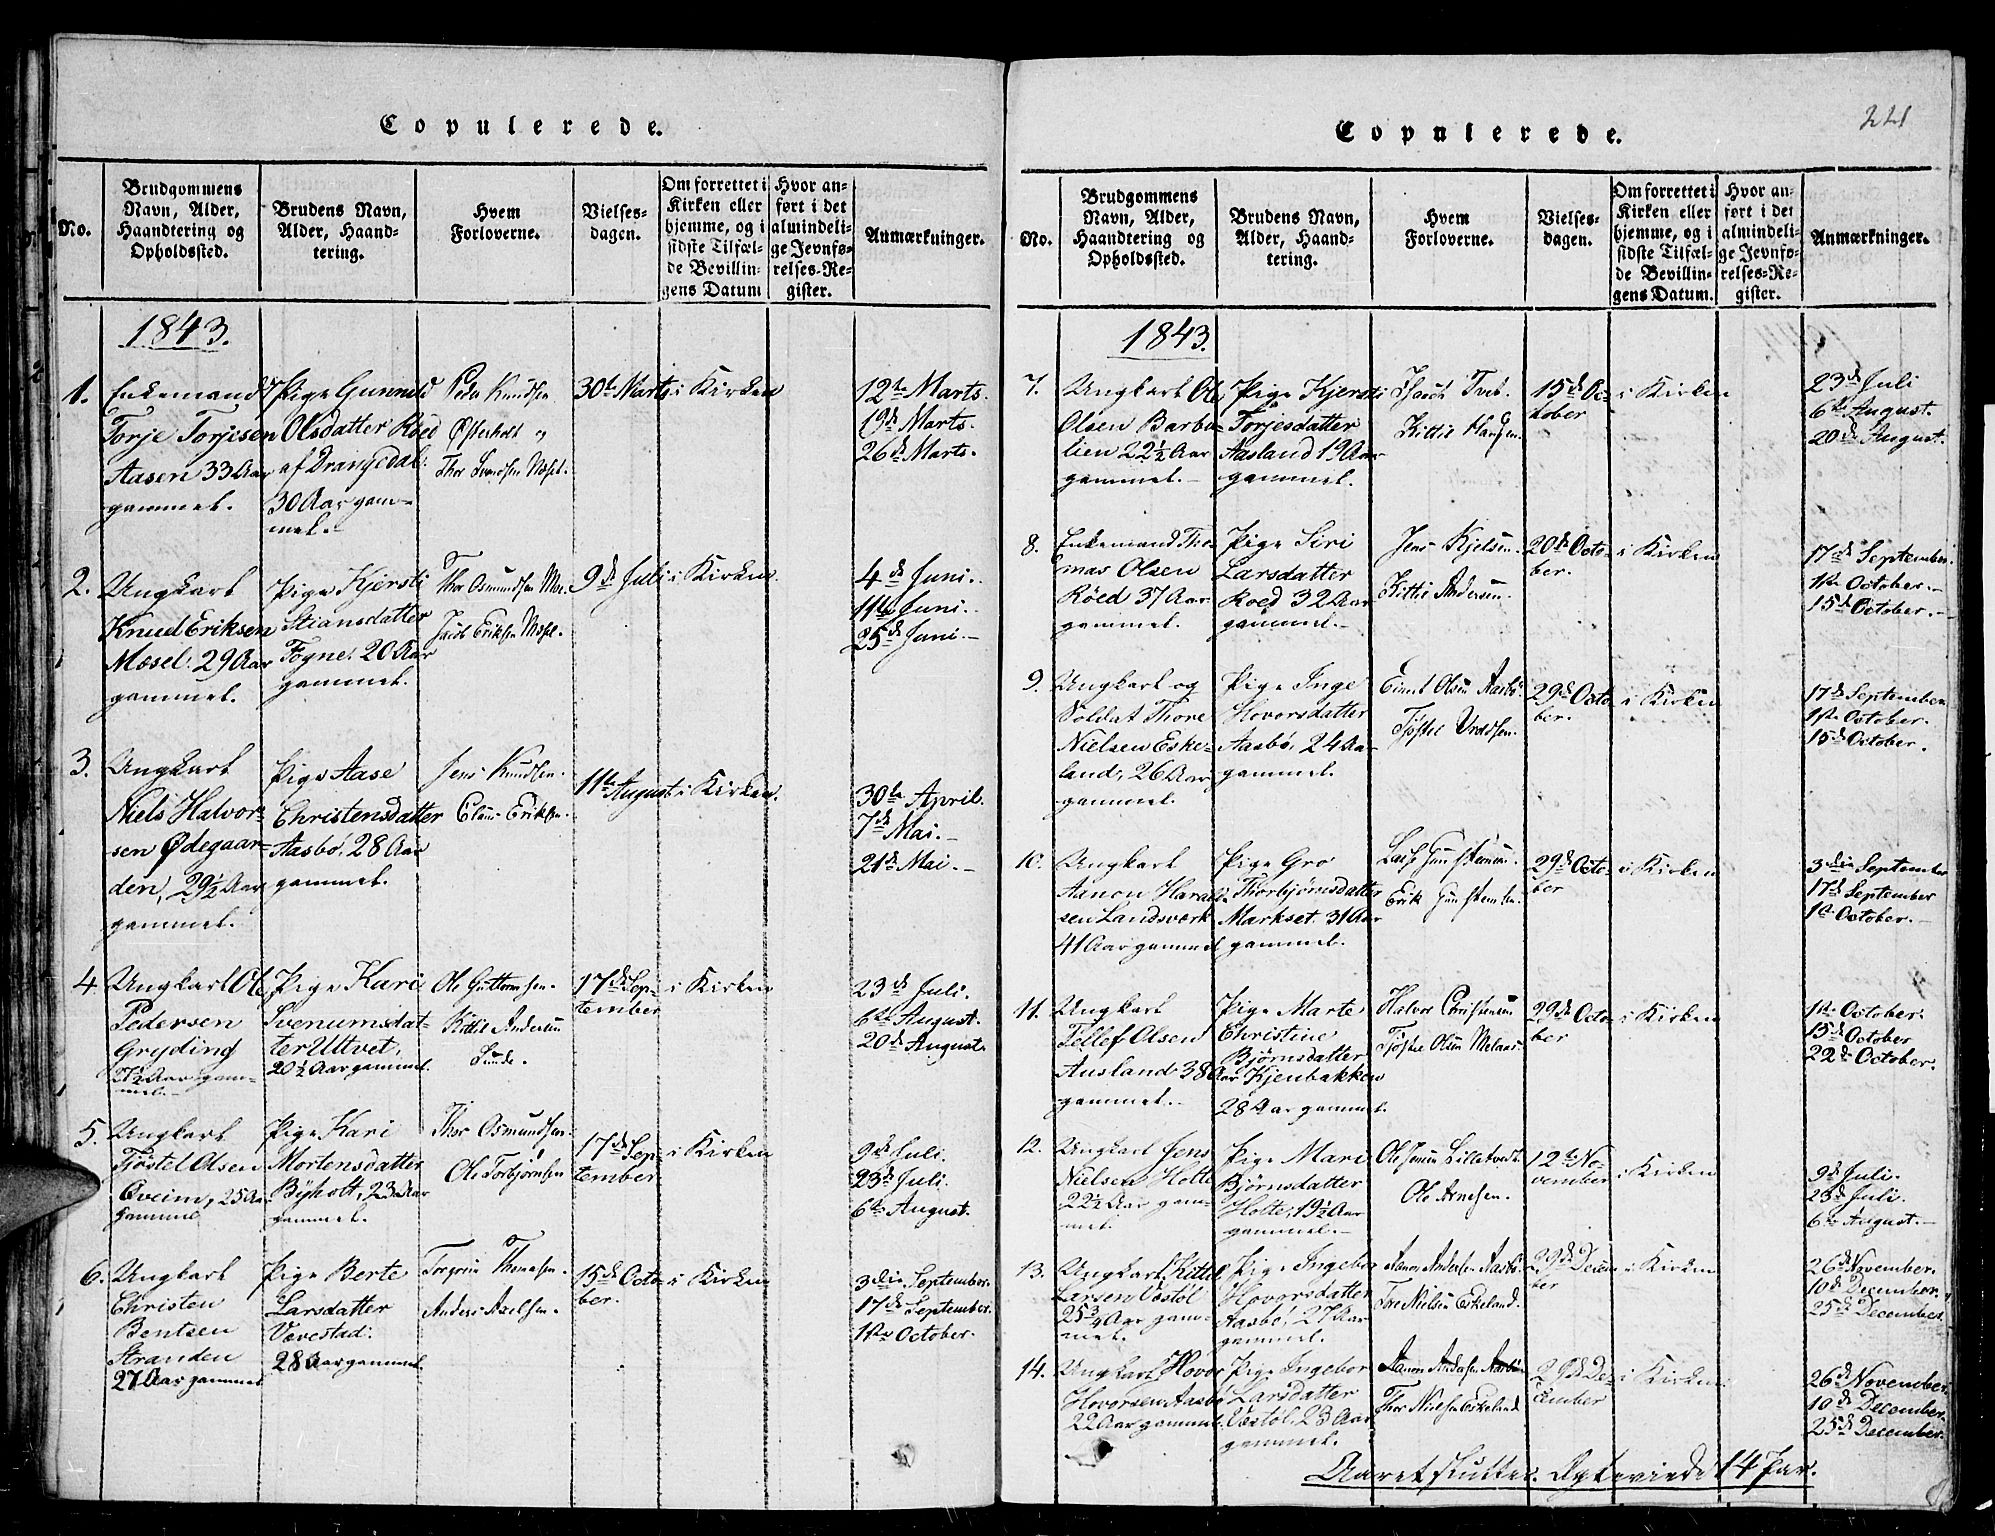 Copulerede.
No.
Brudgommens
Navn, Alder,
Haandtering og
Opholdssted.
Brudens Navn,
Alder, Haand-
tering.
Hvem
Forloverne.
Vielses-
dagen.
Om forrettet i
Kirken eller
hjemme, og i
sidste Tilfæl-
de Bevillin-
gens Datum
Hvor an-
ført i det
almindeli-
ge Jevnfø-
relses-Re-
gister.
Anmærkninger.
1843.
1.
Enkemand
Torje Torjesen
Aasen 33 Aar
gammel.
Pige Gunnild
Olsdatter Röed
af Drangedal.
30 Aar gam-
mel.
Peder Knudsen
Østerholt og
Thor Svendsen Mosel.
30te Marts
i Kirken
12te Marts.
19de Marts.
26de Marts.
2.
Ungkarl
Knud Eriksen
Mæsel. 29 Aar
gammel.
Pige Kjersti
Stiansdatter
Fogne. 20 Aar
gammel.
Thor Osmundsen Moe.
Jacob Eriksen Mosel.
9de Juli
i Kirken.
4de Juni.
11te Juni.
25de Juni.
3.
Ungkarl
Niels Halvor-
sen Ødegaar-
den, 29½ Aar
gammel.
Pige Aase
Christensdatter
Aasbø, 28 Aar
gammel.
Jens Knudsen.
Claus Eriksen.
11te August
i Kirken.
30te April.
7de Mai.
21de Mai.
4.
Ungkarl Ole
Pedersen
Gryding
27½ Aar gam-
mel.
Pige Kari
Svenumsdat-
ter Ultvet,
20½ Aar gammel.
Ole Guttormsen.
Kittil Andersen
Sunde.
17de Sep-
tember
i Kirken
23de Juli.
6te August.
20de August.
5.
Ungkarl
Tjøstel Olsen
Oveim, 25 Aar
gammel
Pige Kari
Mortensdatter
Byholt, 23 Aar
gammel.
Thor Osmundsen.
Ole Torbjørnsen
17de Sep-
tember
i Kirken
9de Juli.
23de Juli.
6te August.
6.
Ungkarl
Christen
Bentsen
Stranden
27 Aar gammel
Pige Berte
Larsdatter
Vovestad.
28 Aar gammel.
Torgrim Thomasen.
Anders Axelsen.
15de Octo-
ber.
i Kirken
3die September.
17de September.
1ste October.
221
Copulerede.
No.
Brudgommens
Navn, Alder,
Haandtering og
Opholdssted.
Brudens Navn,
Alder, Haand-
tering.
Hvem
Forloverne.
Vielses-
dagen.
Om forrettet i
Kirken eller
hjemme, og i
sidste Tilfæl-
de Bevillin-
gens Datum.
Hvor an-
ført i det
almindeli-
ge Jevnfø-
relses-Re-
gister.
Anmærkninger.
1843.
7.
Ungkarl Ole
Olsen Barbu-
lien 22½ Aar
gammel.
Pige Kjersti
Torjesdatter
Aasland 19 Aar
gammel.
Tvet.
Kittil Hansen.
15de Oc-
tober
i Kirken
23de Juli
6te August.
20de August.
8.
Enkemand Tho-
mas Olsen
Röed 37 Aar
gammel.
Pige Siri
Larsdatter
Roed 32 Aar
gammel.
Jens Kjelsen.
Kittil Andersen.
20de Octo-
ber.
i Kirken
17de September.
1ste October.
15de October.
9.
Ungkarl og
Soldat Thore
Nielsen Eske-
land, 26 Aar
gammel.
Pige Inge
Hovorsdatter
Aasbø, 24 Aar
gammel.
Olsen Aasbø.
Tjøstel
29de Octo-
ber.
i Kirken
17de September
1ste October.
15de October.
10.
Ungkarl
Aanon Harald-
sen Landsverk
41 Aar gammel
Pige Gro
Thorbjørnsdatter
Markset. 31 Aar
gammel.
Lasse Gunstensen.
Erik Gunstensen.
29de Octo-
ber
i Kirken
3die September
17de September
1ste October.
11.
Ungkarl
Tellef Olsen
Ausland 38 Aar
gammel.
Pige Marte
Christine
Bjørnsdatter
Kjenbakken
28 Aar gammel.
Halvor Christensen
Tjøstel Olsen Melaas.
29de Octo-
ber
i Kirken
1ste October.
15de October
22de October.
12.
Ungkarl Jens
Nielsen Holte
22½ Aar gam-
mel.
Pige Mari
Bjørnsdatter
Holte, 19½ Aar
gammel.
Ole Jensen Lilletvedt.
Ole Arnesen.
12te No-
vember
i Kirken
9de Juli.
23de Juli.
6te August.
13.
Ungkarl Kittel
Larsen Væstøl
25¾ Aar gam-
mel.
Pige Ingebor
Hovorsdatter
Aasbø, 27 Aar
gammel.
Aanon Andersen Aasbø.
Tore Nielsen Eskeland.
29de Decem-
ber
i Kirken
26de November.
10de December.
25de December.
14.
Ungkarl Hovor
Hovorsen Aasbø
22 Aar gammel.
Pige Ingebor
Larsdatter
Væstøl. 23 Aar
gammel.
Aanon Andersen Aasbøe
Thor Nielsen Eskeland
29de De-
cember
i Kirken
26de November.
10de December.
25de December.
Aaret slutter. Ægteviede 14 Par.